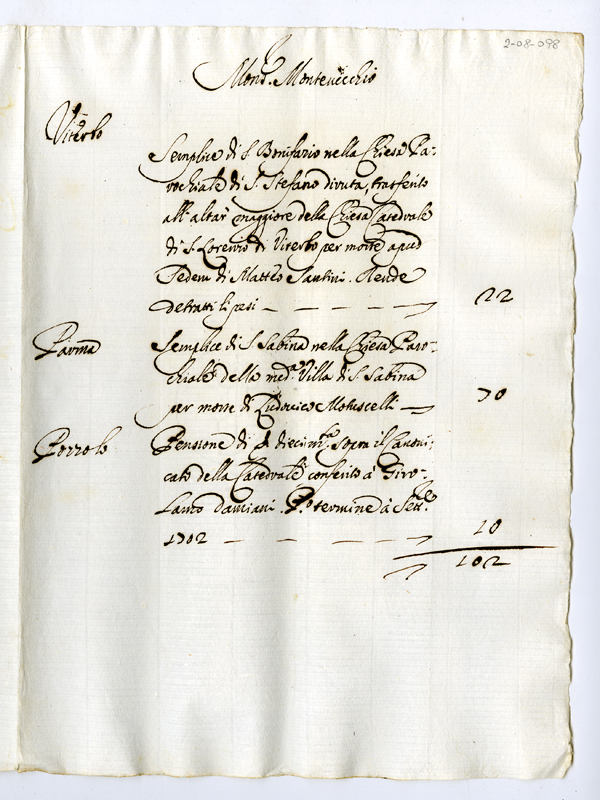 2-08-098
Mons. Montevecchio
Viterbo
Semplice di S. Bonifazio nella Chiesa Pa-
rochiale di S. Stefano diruta, trasferito
all' altar maggiore della Chiesa Catedrale
di S. Lorenzo di Viterbo per morte apud
Sedem di Matteo Santini. Rende
detratti li pesi 22
Parma
Semplice di S. Sabina nella Chiesa Paro-
chiale della med.a Villa di S. Sabina
per morte di Ludovico 70
Pensione di dieci m.ta sopra il Canoni-
cato della Catedrale conferito à Giro-
lamo Damiani. P.o termine à Sett.e
1702 10
102